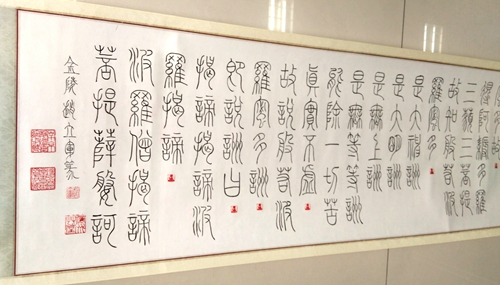 得阿耨多羅
三藐三菩提
故知般若波
羅蜜多
是大神詶
是大明詶
是無上詶
是無等等詶
能除一切苦
真實不虛
故說般若波
羅蜜多詶
即說詶曰
揭諦揭諦波
羅揭諦
波羅僧揭諦
菩提薩婆訶
金陵趙立軍篆